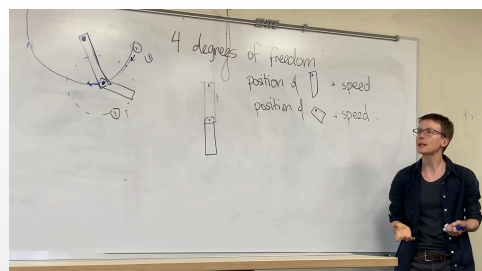 4 degrees of freedom
position of + speed
position of + speed.
①
①